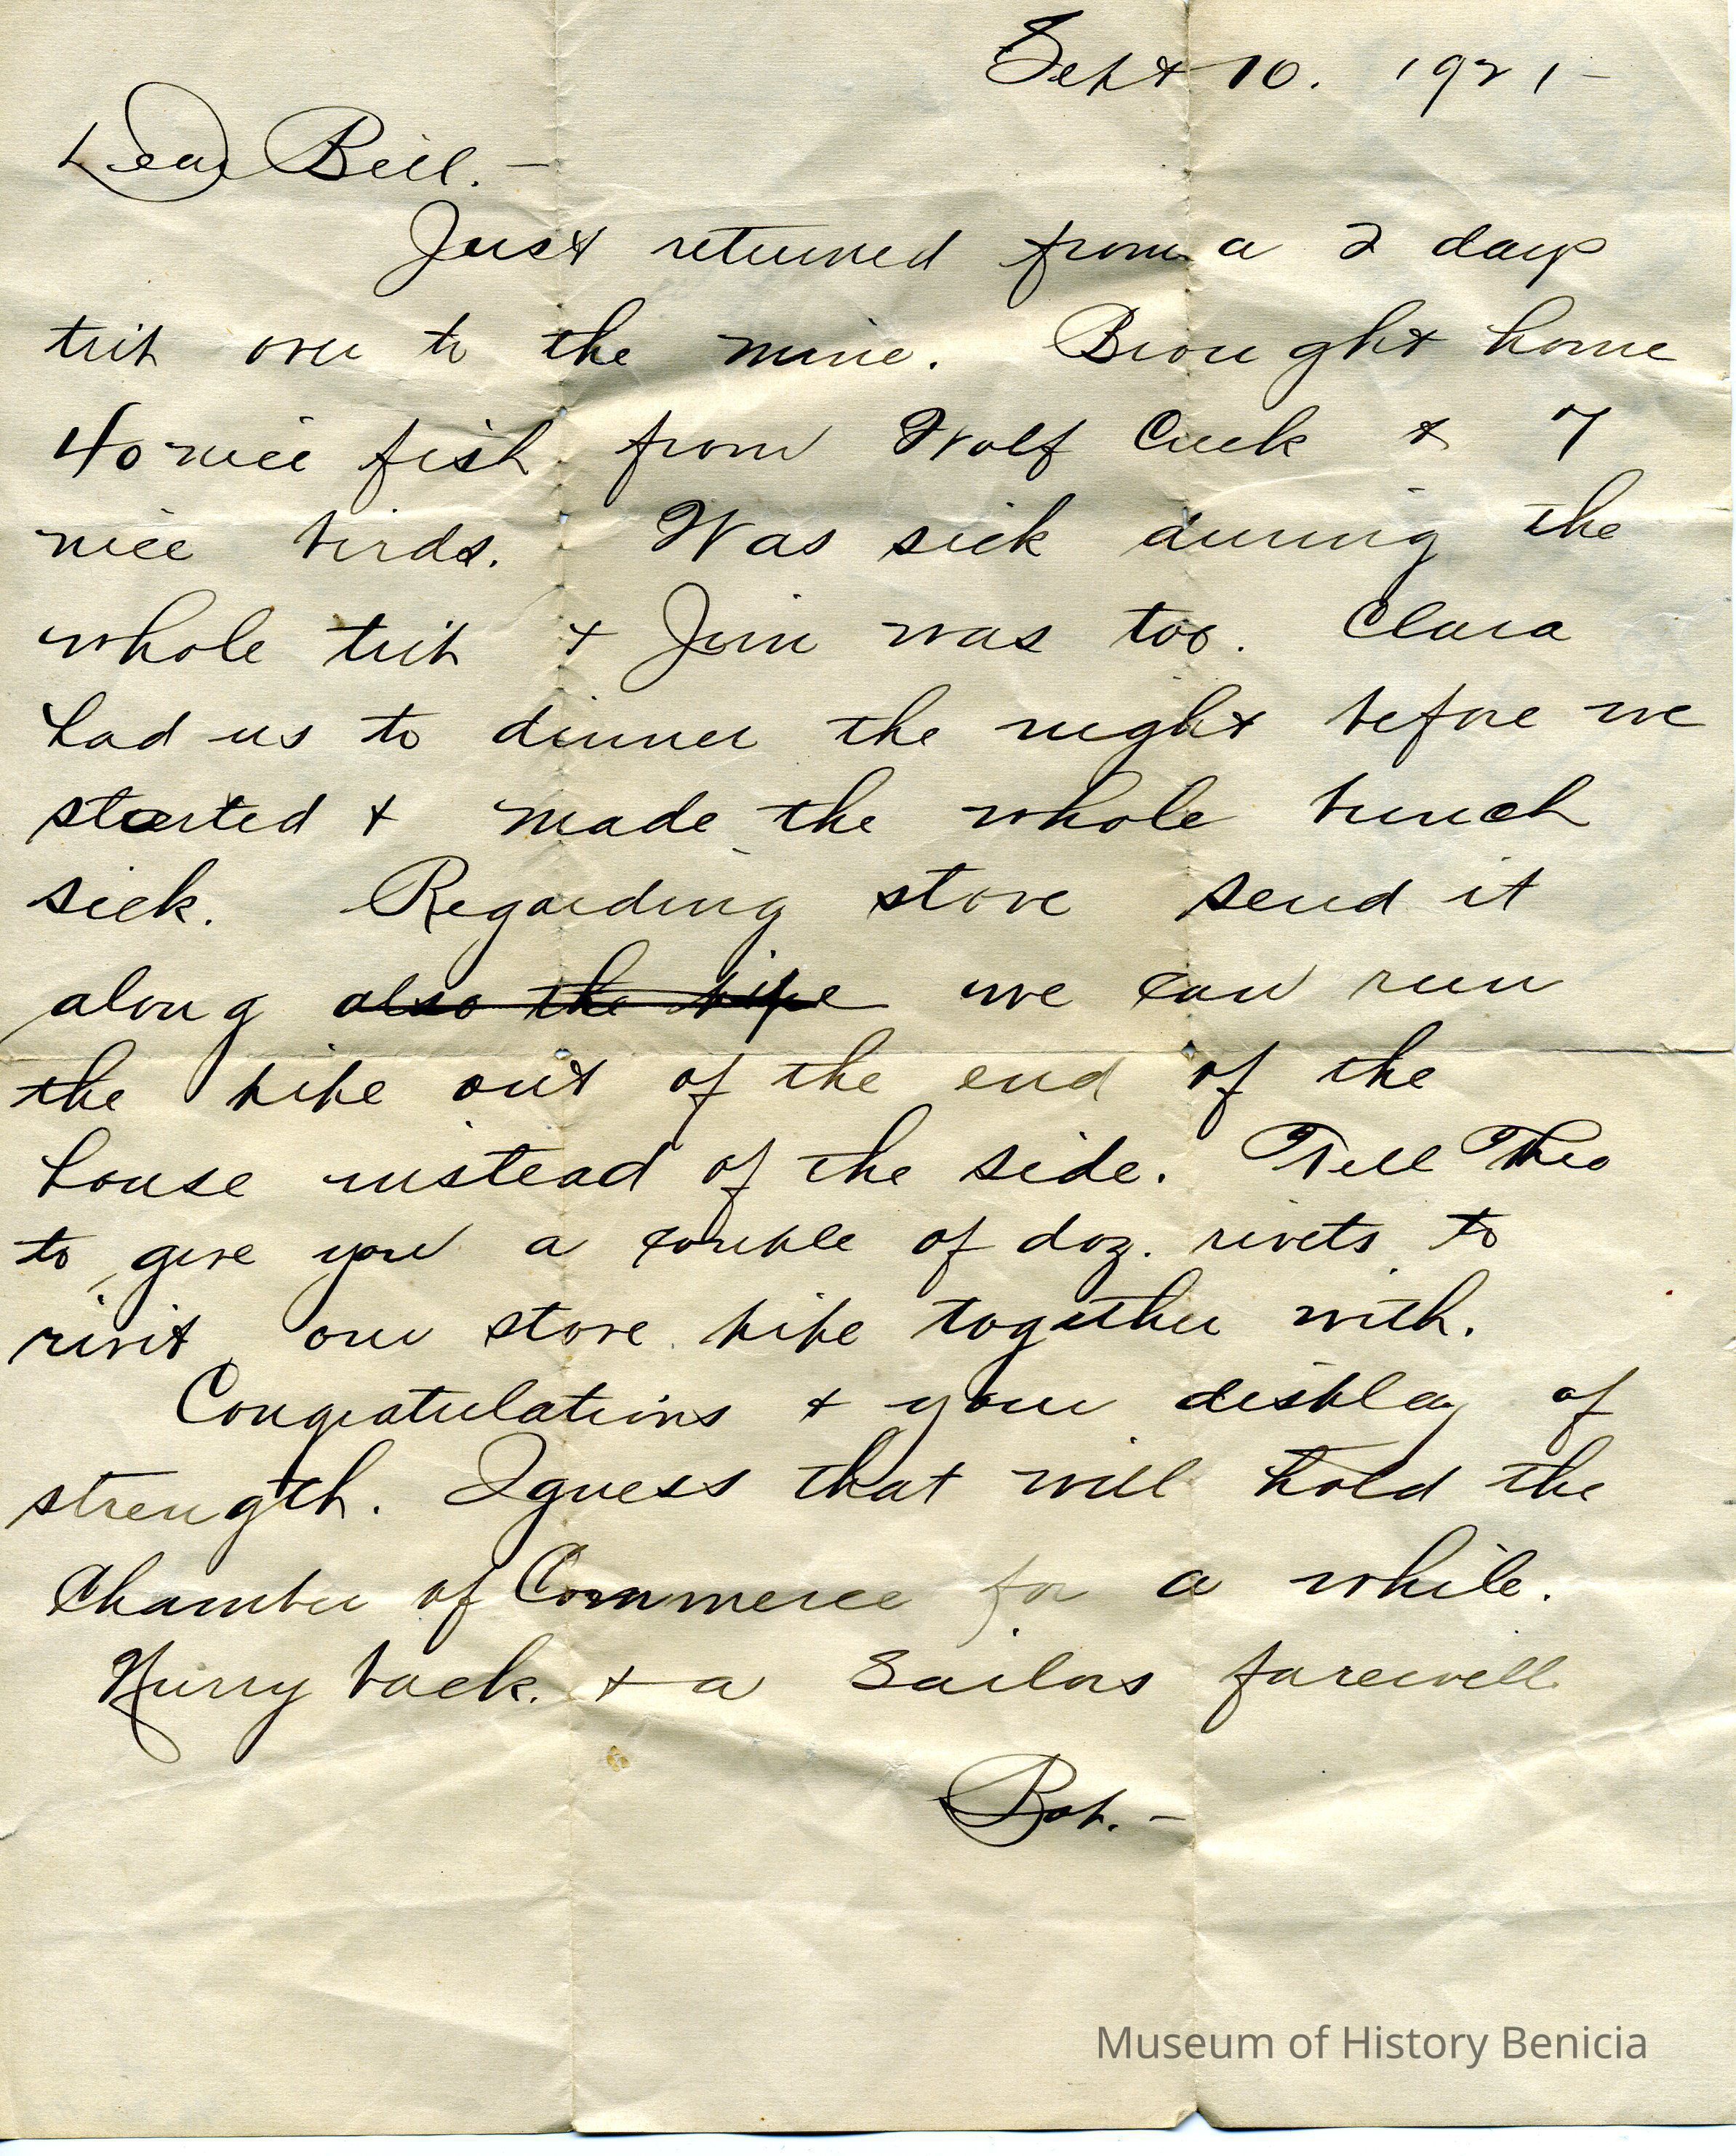 Sept 10. 1921-
Dear Bill.-
Just returned from a 2 days
trip over to the mine. Brought home
40 nice fish from Wolf Creek & 7
nice birds. Was sick during the
whole trip + Jim was too. Clara
had us to dinner the night before we
started + made the whole bunch
sick. Regarding stove send it
along also the pipe we can run
the pipe out of the end of the
house instead of the side. Tell Theo
to give you a couple of doz. rivets to
rivit our stove pipe together with.
Congratulations + your display of
strength. I guess that will hold the
Chamber of Commerce for a while.
Hurry back. + a Sailors farewell
Bob.-
Museum of History Benicia